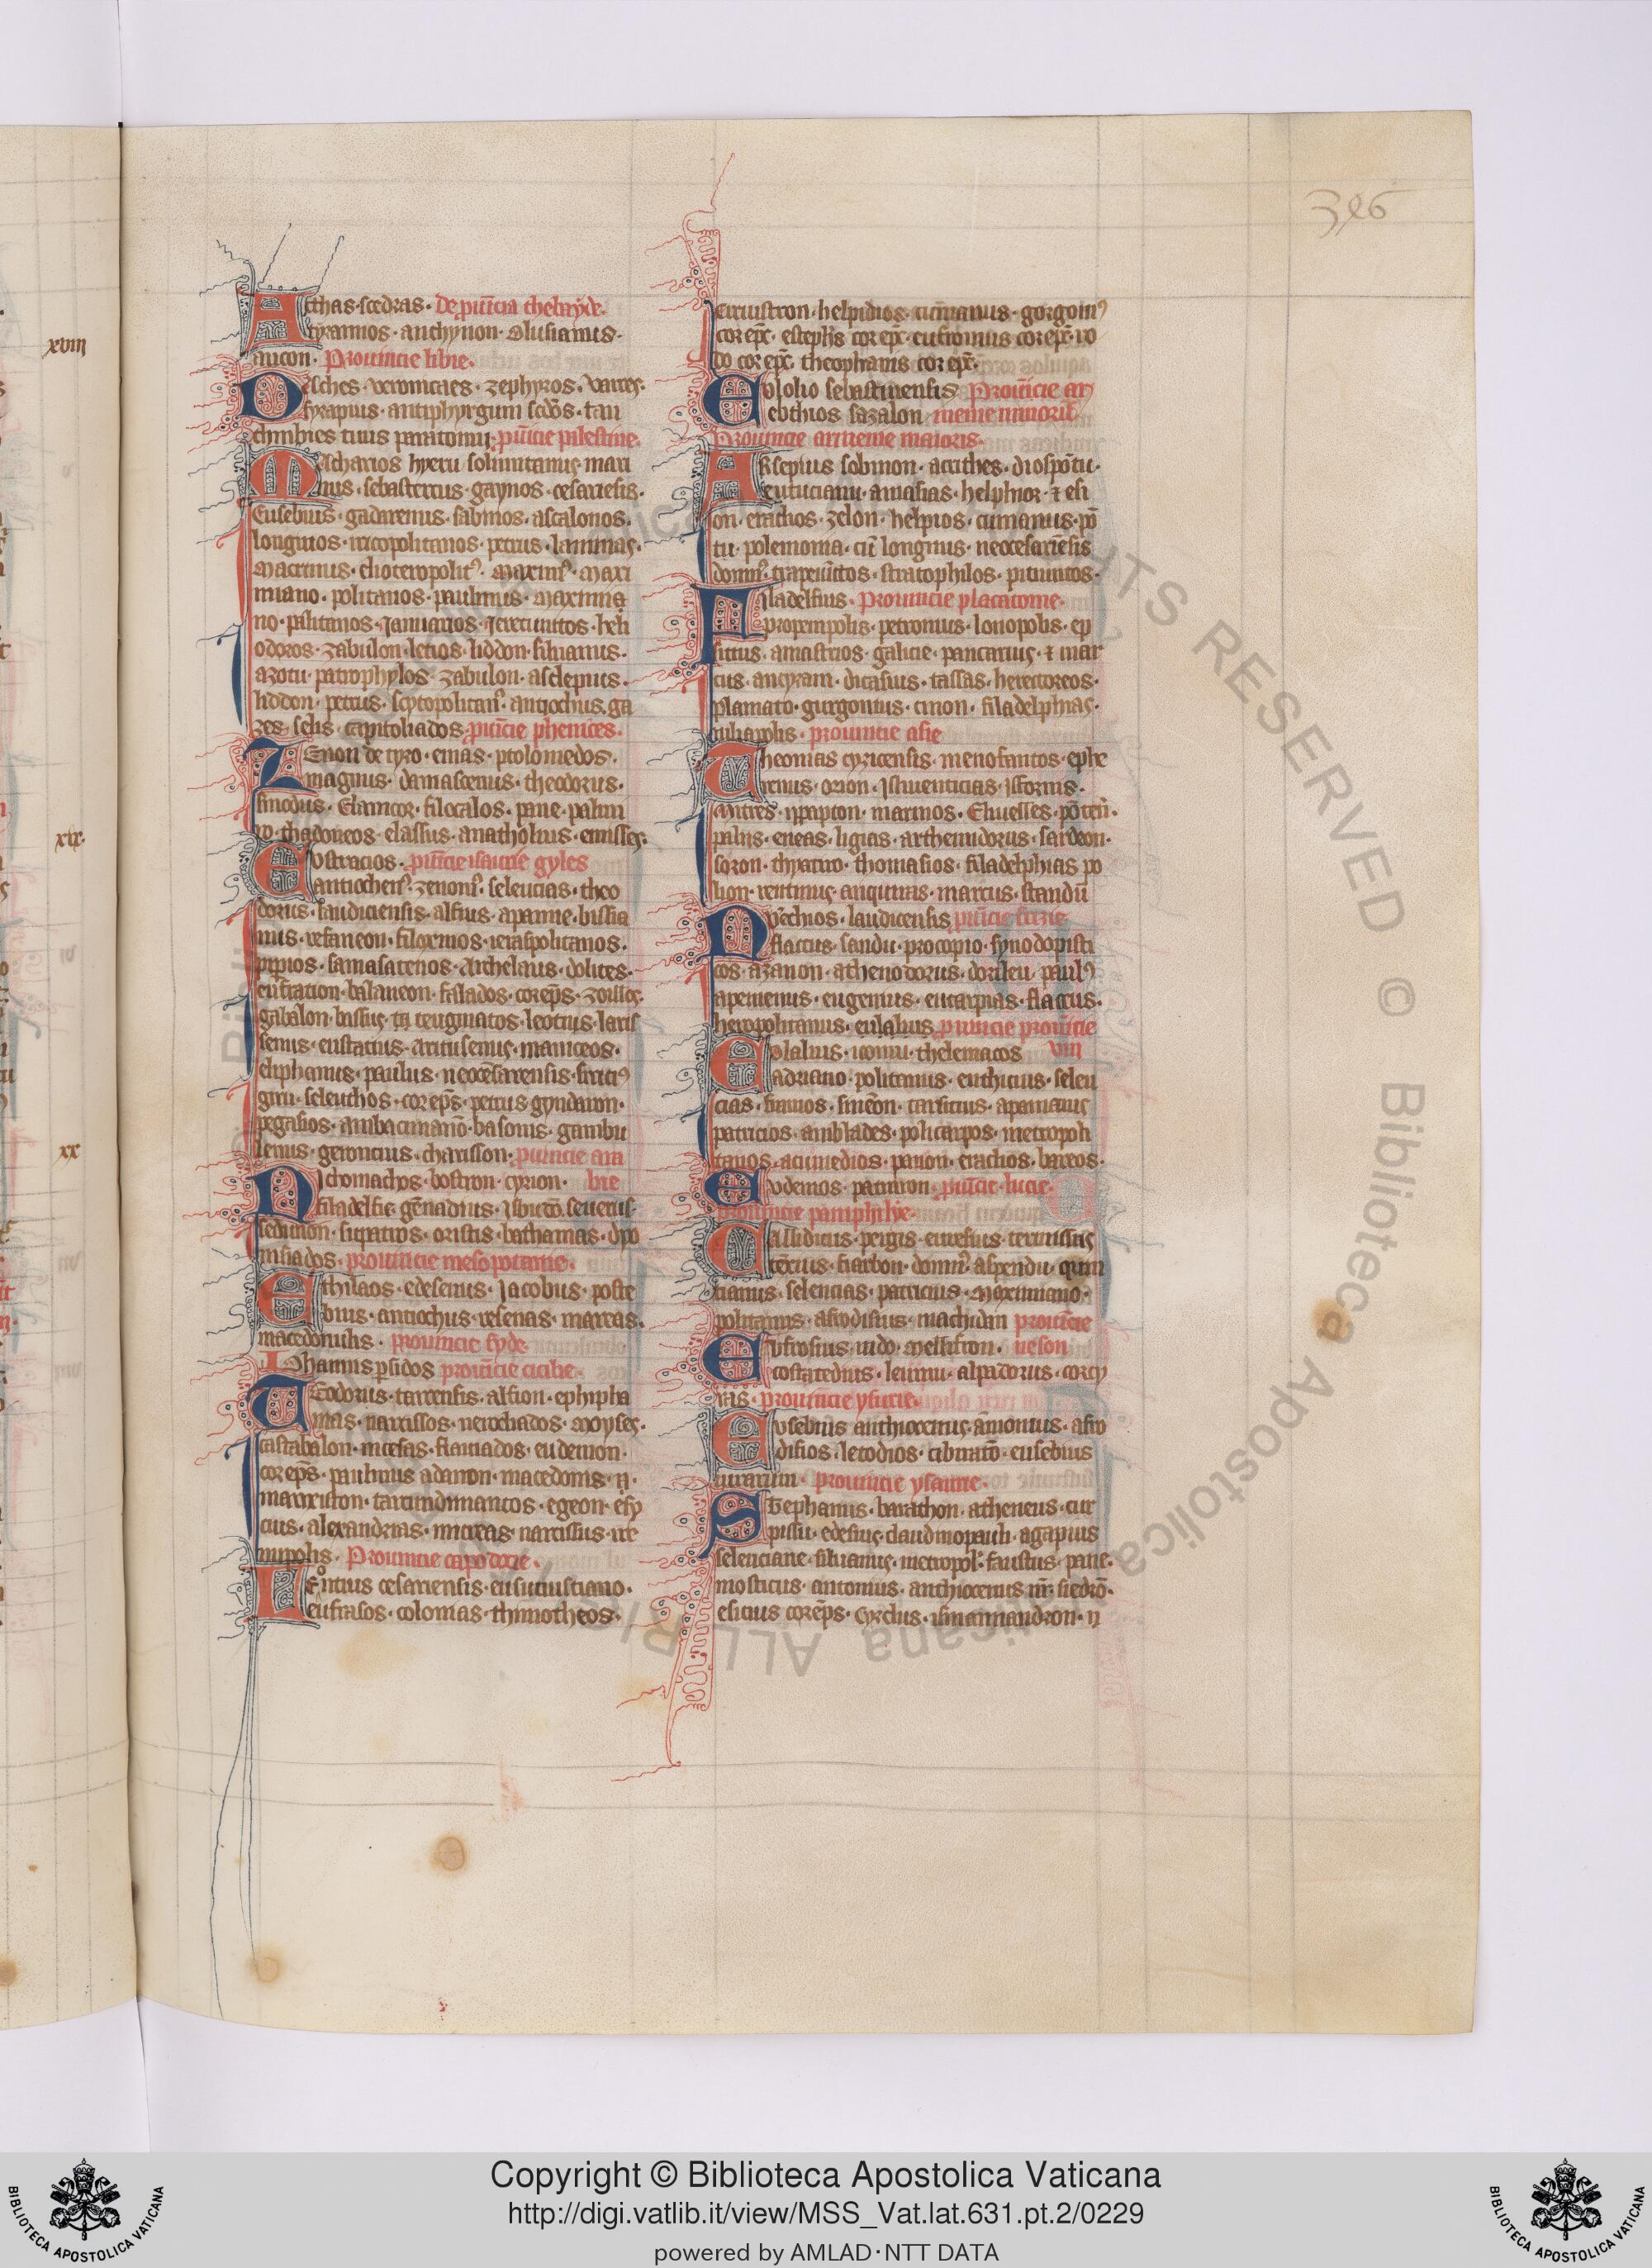 xviii
xix.
xx
326
Atthas · scedras · De prouincia thebayde.
tyrannos · anchynon · Olusianus ·
ancon · Prouincie libie.
Dasches · veronicaes · zephyros · Vattes ·
syrapius · antiphyrgum scd̄os · tau
chinbies titus paratomij · prouīcie pilestine.
Macharios hyeru solimitanus mari
nus · sebastertus · gaynos · cesariesis ·
Eusebius · gadarenus · sabinos · ascalonos ·
longinos · nicopolitanos · petrus · lamnias ·
Macrinus · elioteropolit⁹ · Maxim⁹ · Maxi
miano · politanos · paulinus · Maximia
no · politanos · Januarios · Jerecunttos · heli
odoros · zabulon · letios · liddon · siluanus ·
azotu · patrophylos · zabulon · asclepius ·
liddon · petrus · scytopolitan⁹ · antiochus · ga
zes · selis · capitoliados · prouīcie phenices.
Zenon de tyro · eneas · ptolomedos ·
magnus · damascenus · theodorus ·
sinodus · Elanicor · filocalos · pane · palim
ro · thadoneos · elassus · anatholius · emisses ·
Eustacios · prouīcie isaurie gyles
antiochens⁹ · zenons⁹ · seleucias · theo
dorus · laudiciensis · alfius · apamie · bissia
nus · refaneon · filoxenos · ieraspolitanos ·
pipios · samasatenos · Archelaus · dolites ·
eufration · balaneon · faladdos · corep̄s · zoillos ·
gabalon · bassus · tu teugmatos · leotius · laris
senus · eustatius · Aritusenus · maniceos ·
eliphanus · paulus · neocesarensis · sirici⁹
giru · seleuchos · corep̄s · petrus gyndaron ·
pegasios · Ambacimano · basonis · gambu
lenus · geroncius · charisson · prouīcie ara
Nichomachos · bostron · cyrion · bie
filadelfie · gēnadius · Jsbutō · seuerus ·
sedition · sirpatros · oristis · bathamas · dyo
nisiados · prouincie mesopotamie ·
Ethilaos · edesenus · Jacobus · poste
bius · antiochus · resenas · mareas ·
macedonulis · prouincie syde
Johannis psidos prouīcie cicilie ·
Teodorus · tarcensis · alfion · ephipha
mas · narcissos · nerochados · Moyses ·
castabalon · nicetas · flauiados · eudemon ·
corep̄s · paulinus adanon · macedonis · ij ·
macrixton · tarcundimantos · egeon · esy
cius · alexandrias · micreas · narcissus · ire
nupolis · Prouincie capodocie ·
Leōntius cesariensis · eusutiustiano ·
eufrasos · colonias · thimotheos ·
Jeriuistron · helpidios · cumanus · gorgoni⁹
cor ep̄c · estephis cor ep̄c · eufromus cor ep̄c · ro
do cor ep̄c · theophanis cor ep̄c ·
Eulolio sebastinensis Prouīcie ar
ebthios sazalon menie minoris
Prouincie armenie maioris ·
Arseptus sobmon · acrithes · diospōtu ·
eutuciani · amasias · helphior · ⁊ esi
on · erachos · zelon · helpios · cumanus · pō
tu · polemonia · cū longinus · neocesariēsis
domn⁹ · trapezūtos · stratophilos · pituntos ·
Filadelfius · Prouincie placatome ·
propempolis · petronius · Ionopolis · ep
sittus · amastrios · galicie · pancarius · ⁊ mar
cus · ancyram · dicasius · tassas · herectoreos ·
plamato · gurgonius · cinon · filadelphias ·
iuliapolis · prouincie asie
Theonias cyzicensis · menofantos · ephe
renus · orion · Jsluenticias · isfornis ·
Mitres · yppapton · marinos · Ehuesses · pōtem̄ ·
palus · eneas · ligias · arthemidorus · sardeon ·
soron · thyatiro · thomasios · filadelphias · po
lion · rentinus · anquiras · marcus · standū
Nyethios · laudicensis prouīcie frizie
flaccus · sandu · procopio · synodopisti
cos · azanon · athenodorus · dorileu · paul⁹
apemenus · eugenius · eucarpias · flaccus ·
heropolitanus · eulalius prouīcie prouīcie
Eolalius · iconiu · thelemacos viii
adriano · politanus · euthicius · seleu
cias · siamos · simeon · tarsicius · apamanus
patricios · amblades · policarpos · metropoli
tanos · acumedios · parion · erachos · bareos ·
Eudemos · pataron · prouīcie lucie ·
Prouincie pamphilye
Callidicus · pergis · euresius · termissus
teexius · siarbon · domn⁹ · aspendu · quin
tianus · selencias · patricius · Maximiano ·
politanus · afrodisius · machidan prouīcie
Eufrosius · urdo · Mellefron · ueson
costatedius · leunu · alpadorus · corcy
ras · prouincie ysurie ·
Eusebius anthiocenus · āmonius · afro
disios · letodios · cibiratō · eusebius
miratun · prouincie ysaurie ·
Stephanus · barathon · atheneus · cur
pissu · edesius · claudinopauli · agapius
selenciane · siluanus · metropol: faustus · pane ·
mosticus · antonius · anthiocenus nr̄ siedrō ·
esicius corep̄s · cyrclus · ismannandron · ij
Copyright © Biblioteca Apostolica Vaticana
http://digi.vatlib.it/view/MSS_Vat.lat.631.pt.2/0229
powered by AMLAD·NTT DATA
BIBLIOTECA APOSTOLICA VATICANA
BIBLIOTECA APOSTOLICA VATICANA